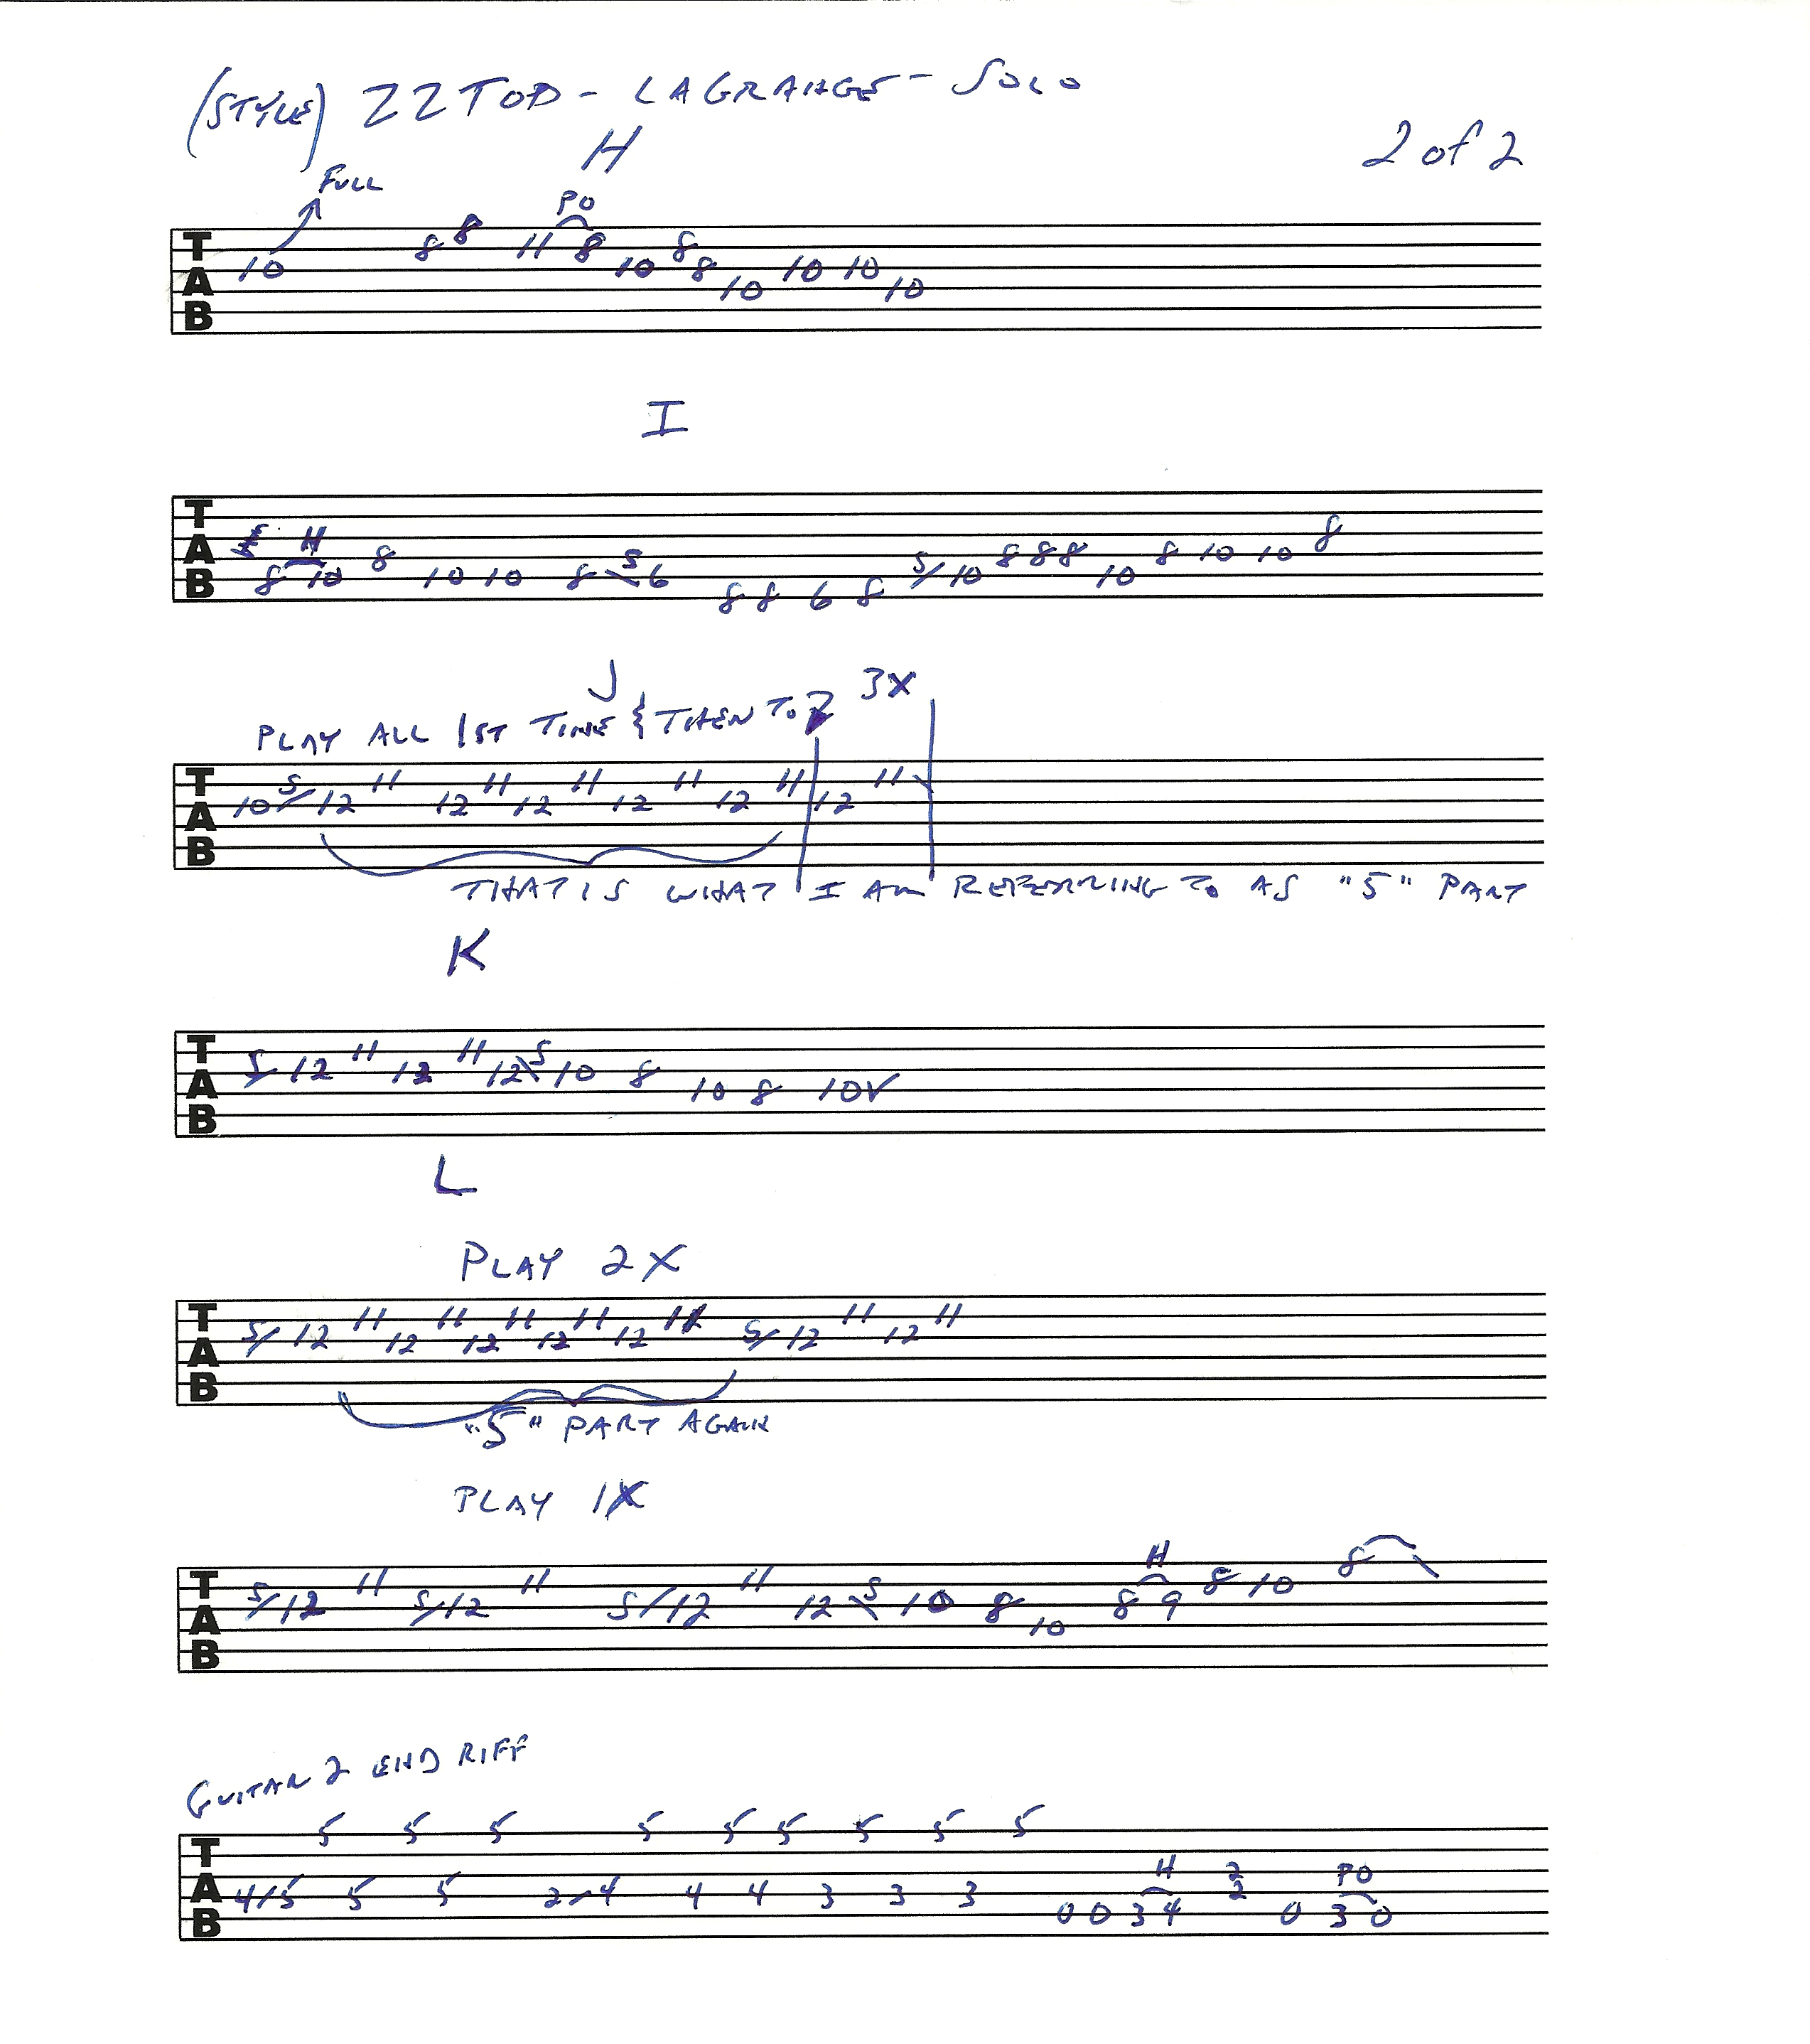 (STYLE) ZZ TOP - LAGRANGE - SOLO
2 of 2
H
FULL
PO
TAB 10 8 8 11 8 10 8 8 10 10 10 10
I
H S S
TAB 8 10 8 10 10 8 6 8 8 6 8 10 8 8 8 10 8 10 10 8
J
PLAY ALL 1ST TIME & THEN TO 3X
TAB 10 S/ 12 11 12 11 12 11 12 11 12 11 12 11
THAT IS WHAT I AM REFERRING TO AS "5" PART
K
TAB S/ 12 11 12 11 12 S\ 10 8 10 8 10V
L
PLAY 2X
TAB S/ 12 11 12 11 12 11 12 11 12 11 S/ 12 11 12 11
"5" PART AGAIN
PLAY 1X
H
TAB S/12 11 S/12 11 S/12 11 12 S\ 10 8 10 8 9 8 10 8
GUITAR 2 END RIFF
5 5 5 5 5 5 5 5 5
H 2 PO
TAB 4/5 5 5 2/4 4 4 3 3 3 0 0 3 4 2 0 3 0